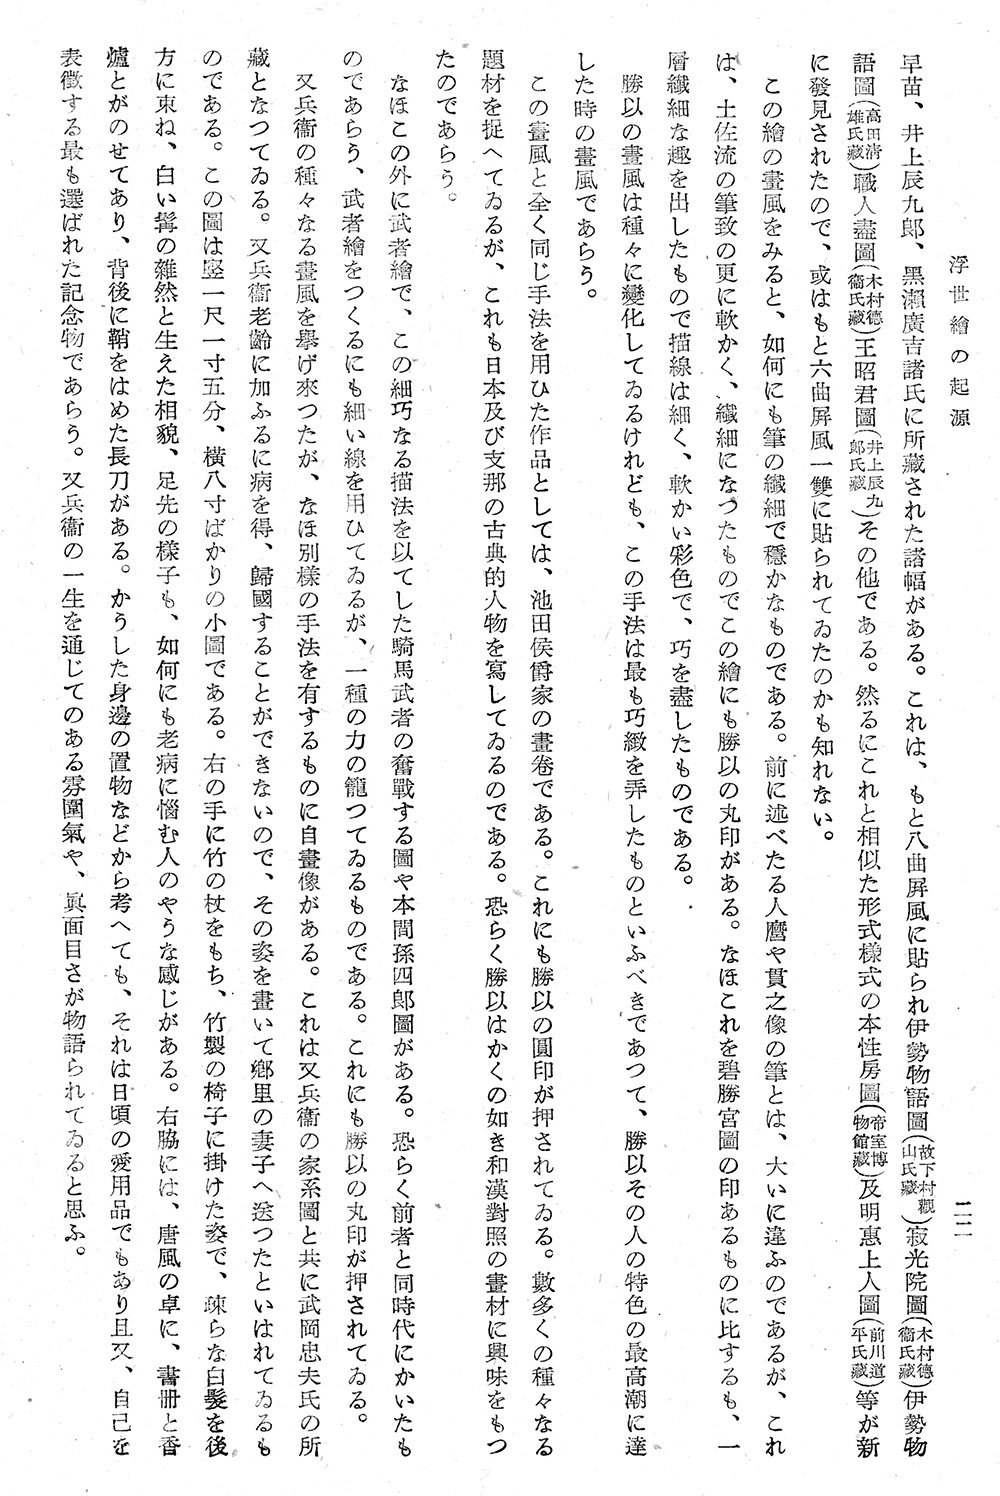 浮世繪の起源
二二
早苗、井上辰九郎、黑瀨廣吉諸氏に所藏された諸幅がある。これは、もと八曲屏風に貼られ伊勢物語圖(故下村觀山氏藏)寂光院圖(木村德衞氏藏)伊勢物
語圖(高田淸雄氏藏)職人盡圖(木村德衞氏藏)王昭君圖(井上辰九郎氏藏)その他である。然るにこれと相似た形式樣式の本性房圖(帝室博物館藏)及明惠上人圖(前川道平氏藏)等が新
に發見されたので、或はもと六曲屏風一雙に貼られてゐたのかも知れない。
この繪の畫風をみると、如何にも筆の纎細で穩かなものである。前に述べたる人麿や貫之像の筆とは、大いに違ふのであるが、これ
は、土佐流の筆致の更に軟かく、纎細になつたものでこの繪にも勝以の丸印がある。なほこれを碧勝宮圖の印あるものに比するも、一
層纎細な趣を出したもので描線は細く、軟かい彩色で、巧を盡したものである。
勝以の畫風は種々に變化してゐるけれども、この手法は最も巧緻を弄したものといふべきであつて、勝以その人の特色の最高潮に達
した時の畫風であらう。
この畫風と全く同じ手法を用ひた作品としては、池田侯爵家の畫卷である。これにも勝以の圓印が押されてゐる。數多くの種々なる
題材を捉へてゐるが、これも日本及び支那の古典的人物を寫してゐるのである。恐らく勝以はかくの如き和漢對照の畫材に興味をもつ
たのであらう。
なほこの外に武者繪で、この細巧なる描法を以てした騎馬武者の奮戰する圖や本間孫四郎圖がある。恐らく前者と同時代にかいたも
のであらう、武者繪をつくるにも細い線を用ひてゐるが、一種の力の籠つてゐるものである。これにも勝以の丸印が押されてゐる。
又兵衞の種々なる畫風を擧げ來つたが、なほ別樣の手法を有するものに自畫像がある。これは又兵衞の家系圖と共に武岡忠夫氏の所
藏となつてゐる。又兵衞老齡に加ふるに病を得、歸國することができないので、その姿を畫いて鄕里の妻子へ送つたといはれてゐるも
のである。この圖は竪一尺一寸五分、橫八寸ばかりの小圖である。右の手に竹の杖をもち、竹製の椅子に掛けた姿で、疎らな白髮を後
方に束ね、白い髯の雜然と生えた相貌、足先の樣子も、如何にも老病に惱む人のやうな感じがある。右脇には、唐風の卓に、書册と香
爐とがのせてあり、背後に鞘をはめた長刀がある。かうした身邊の置物などから考へても、それは日頃の愛用品でもあり且又、自己を
表徵する最も選ばれた記念物であらう。又兵衞の一生を通じてのある雰圍氣や、眞面目さが物語られてゐると思ふ。